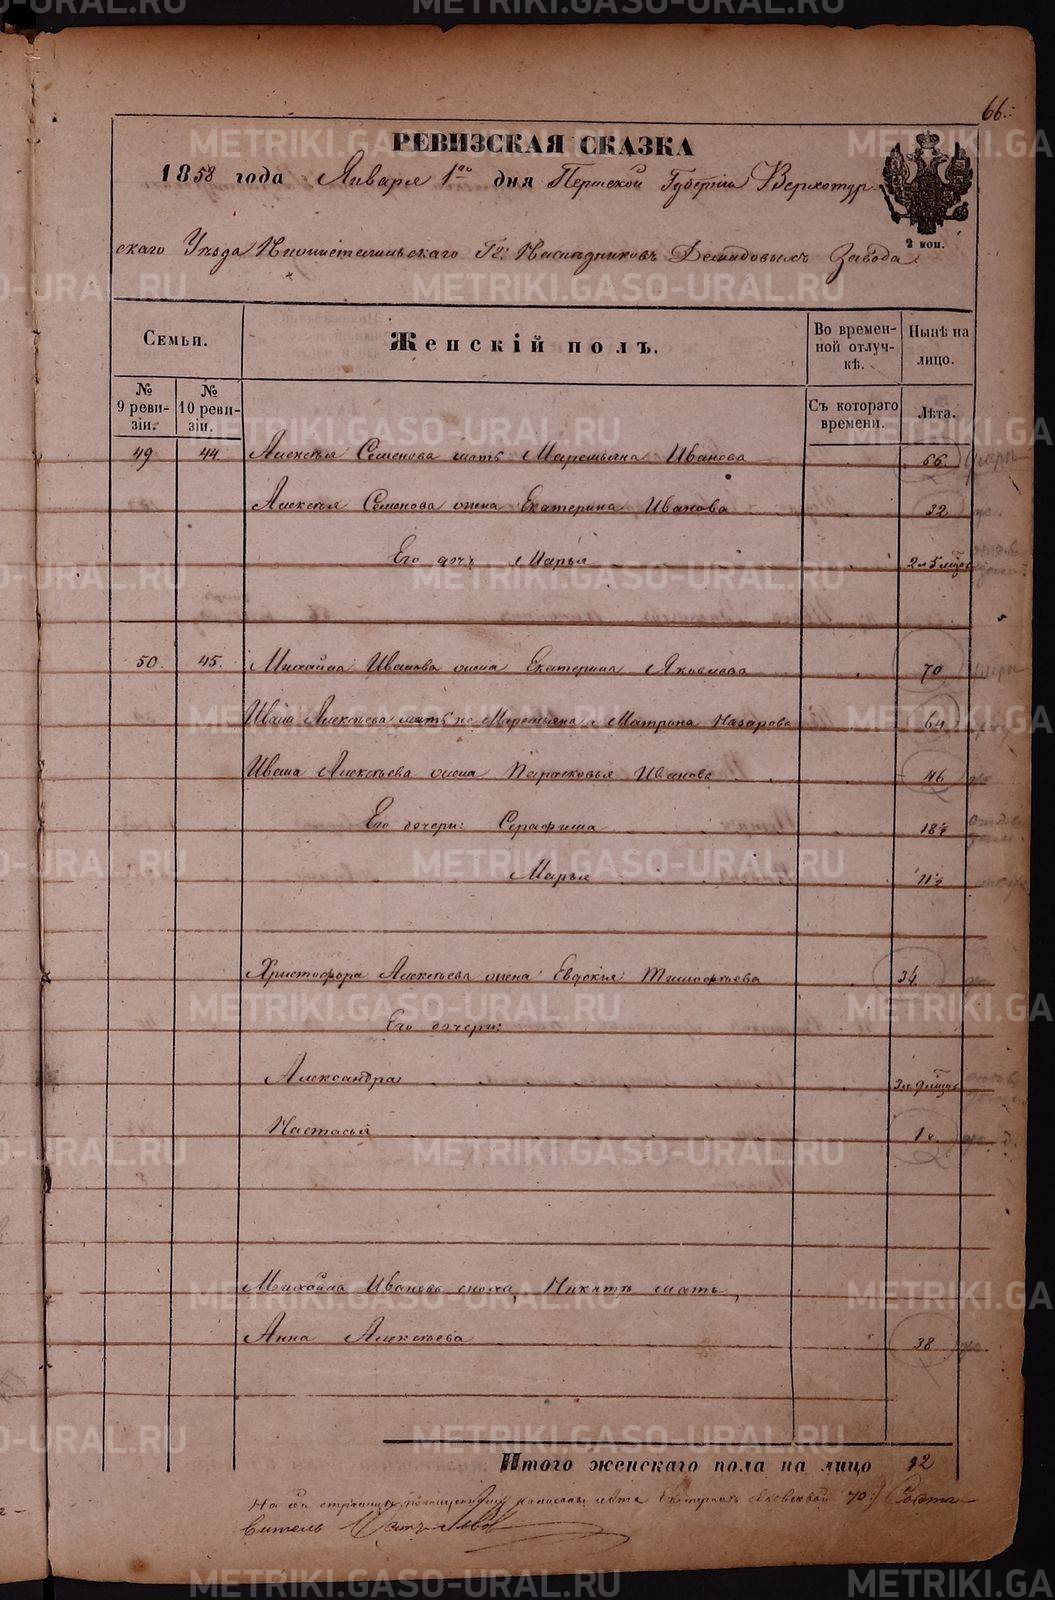 66.
РЕВИЗСКАЯ СКАЗКА
1858 года Января 1го дня Пермской Губерніи Верхотур
скаго Уѣзда Нижнетагильскаго Гг. Наслѣдниковъ Демидовыхъ Завода
2 коп.
Семьи.
Женскій полъ.
Во времен-
ной отлуч-
кѣ.
Нынѣ на
лицо.
№
9 реви-
зіи.
№
10 реви-
зіи.
Съ котораго
времени.
Лѣта.
49 44 Алексѣя Семенова мать Маремьяна Иванова 66.
Алексѣя Семенова жена Екатерина Иванова 32
Его дочь Марья 2 л 5 мцов
50. 45. Михайла Иванова жена Екатерина Яковлева 70
Ивана Алексѣева мать не Маремьяна а Матрона Назарова 64
Ивана Алексѣева жена Парасковья Иванова 46
Его дочери: Серафима 18½
Марья 11½
Христофора Алексѣева жена Евдокія Тимофѣева 34.
Его дочери:
Александра 3 л 9 мцов
Настасья 1
Михайла Иванова сноха, Никитѣ мать,
Анна Алексѣева 38
Итого женскаго пола на лицо 12
На сей страницѣ по написаны лѣта Екатеринѣ Яковлевой 70. Соста-
витель
METRIKI.GASO-URAL.RU